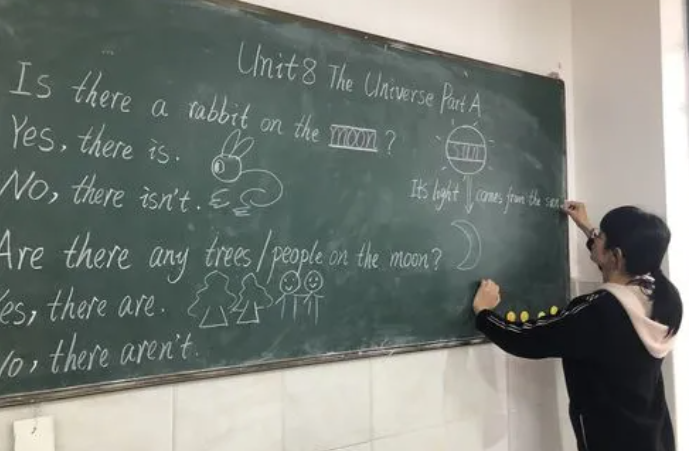 Unit 8 The Universe Part A
Is there a rabbit on the moon?
Yes, there is.
No, there isn't.
sun
It's light comes from the sun.
Are there any trees/people on the moon?
Yes, there are.
No, there aren't.